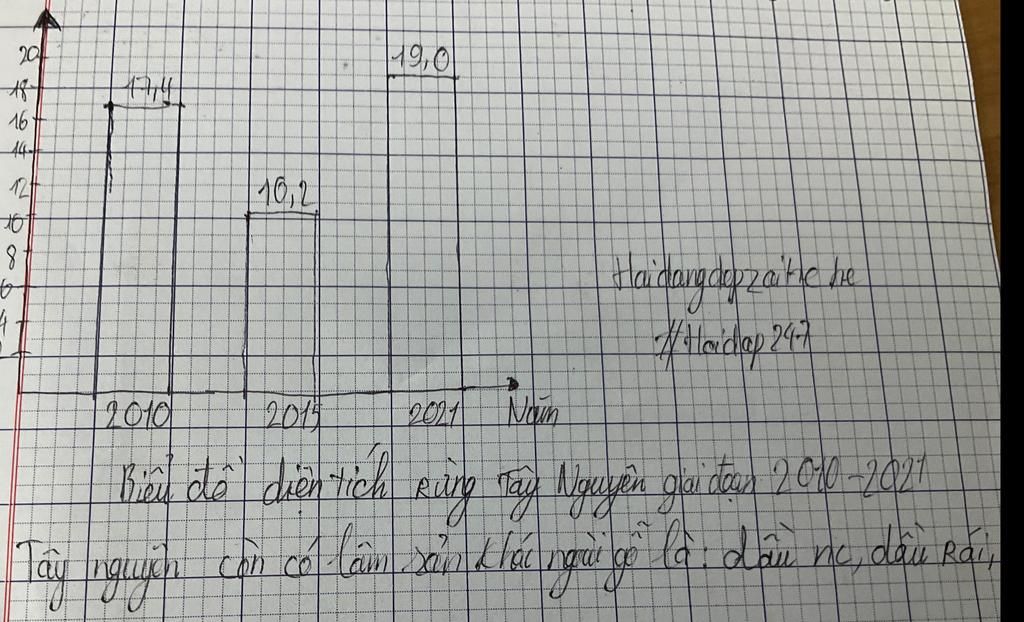 20
19,0
18
17,4
16
14
12
10,2
10
8
6
4
2
2010 2015 2021 Năm
Haidangdepzaihe he
#Hoidap247
Biểu đồ diện tích Rừng Tây Nguyên giai đoạn 2010-2021
Tây nguyên còn có lâm sản khác ngoài gỗ là: dầu nc, dầu Rái,